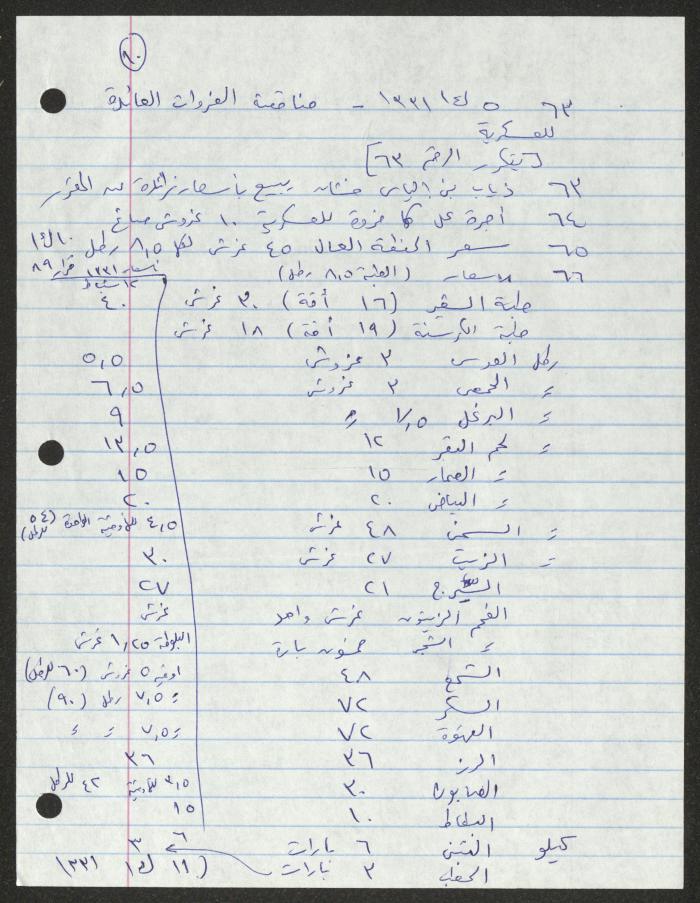 ١٠
٦٣ ٥ ك١ ١٣٣١ - مناقصة الفروات العائدة
للعسكرية
[يتكرر الرقم ٦٣]
٦٣ ذياب بن الياس يبيع بأسعار زائدة عن المقرر
٦٤ أجرة عمل كل فروة للعسكرية ١٠ غروش صاغ
٦٥ سعر الحنطة العال ٤٥ غرش لكل ٨,٥ رطل ١٠ ك١
٦٦ الاسعار (العلبة ٨,٥ رطل) أسعار ١٣٣١ قرار ٨٩
١٢ شباط
علبة الشعير (١٦ أقة) ٣٠ غرش ٤٠
علبة الكرسنة (١٩ أقة) ١٨ غرش
رطل العدس ٣ غروش ٥,٥
= الحمص ٣ غروش ٦,٥
= البرغل ١,٥ ٩
= لحم البقر ١٢ ١٣,٥
= ١٥ ١٥
= البياض ٢٠ ٢٠
= السمن ٤٨ غرش ٤,٥ للأوقية الواحدة (٥٤ للرطل)
= الزيت ٢٧ غرش ٣٠
السيرج ٢١ ٢٧
الفحم الزيتون غرش واحد غرش
= الشجر خمسون بارة البلوطة ١,٢٥ غرش
الشمع ٤٨ اوقية ٥ غروش (٦٠ للرطل)
السكر ٧٢ = ٧,٥ رطل (٩٠)
القهوة ٧٢ = ٧,٥ = =
الرز ٣٦ ٣٦
الصابون ٣٠ ٣,٥ للأوقية ٤٢ للرطل
البطاط ١٠ ١٥
كيلو التبن ٦ بارات ٦
الحطب ٣ بارات ٣
(١١ ك١ ١٣٣١